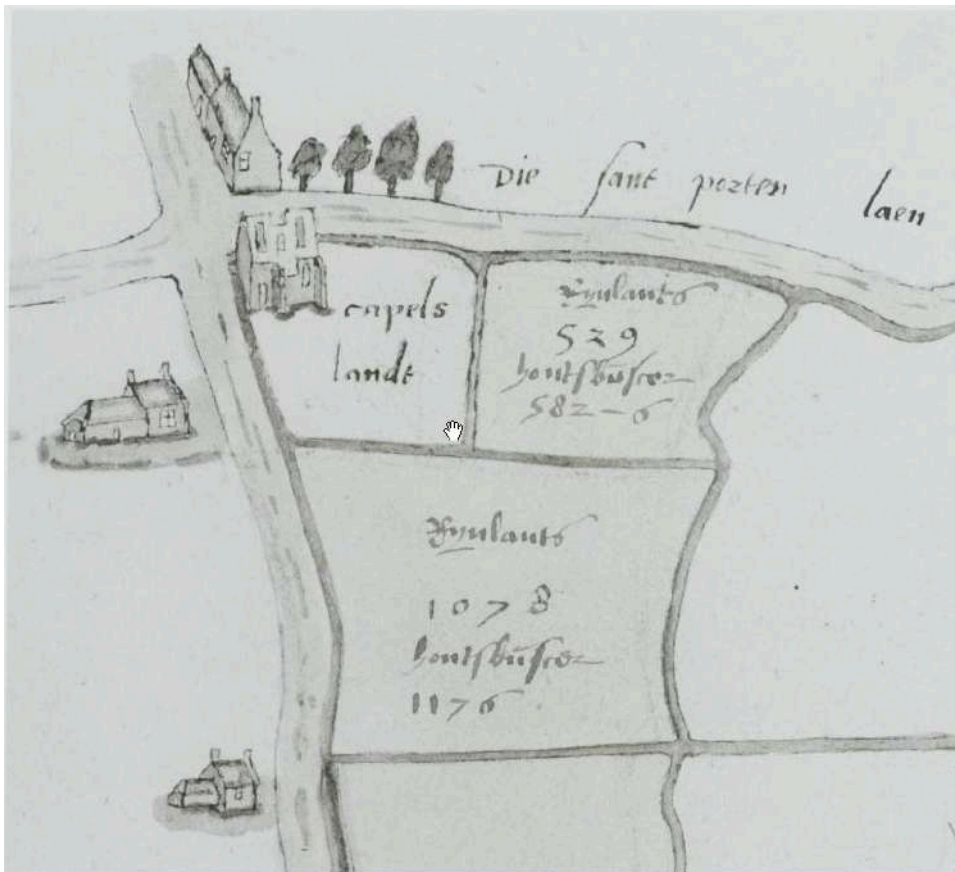 Die sant porten laen
capels
landt
Rynlants
529
hontsbuscer
582-6
Rynlants
1078
hontsbuscer
1176